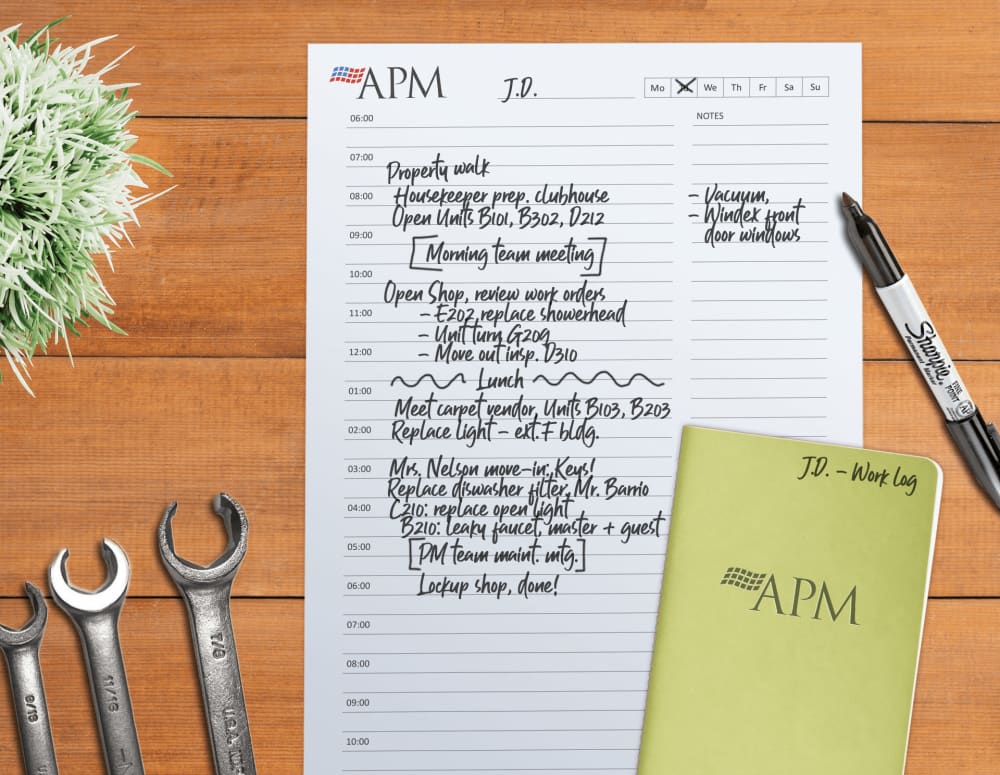 APM
J.D.
Mo We Th Fr Sa Su
NOTES
06:00
07:00
Property walk
08:00 Housekeeper prep. clubhouse
Open Units B101, B302, D212
– Vacuum,
– Windex front
door windows
09:00
[Morning team meeting]
10:00
Open Shop, review work orders
11:00 – E202 replace showerhead
– Unit turn G209
12:00 – Move out insp. D310
Lunch
01:00
Meet carpet vendor, Units B103, B203
02:00 Replace light – ext. F bldg.
03:00 Mrs. Nelson move-in: Keys!
Replace diswasher filter, Mr. Barrio
04:00 C210: replace open light
B210: leaky faucet, master + guest
05:00 [PM team maint. mtg.]
06:00 Lockup shop, done!
07:00
08:00
09:00
10:00
Sharpie
Permanent Marker
FINE
POINT
AP
J.D. – Work log
APM
9/16
11/16
7/8